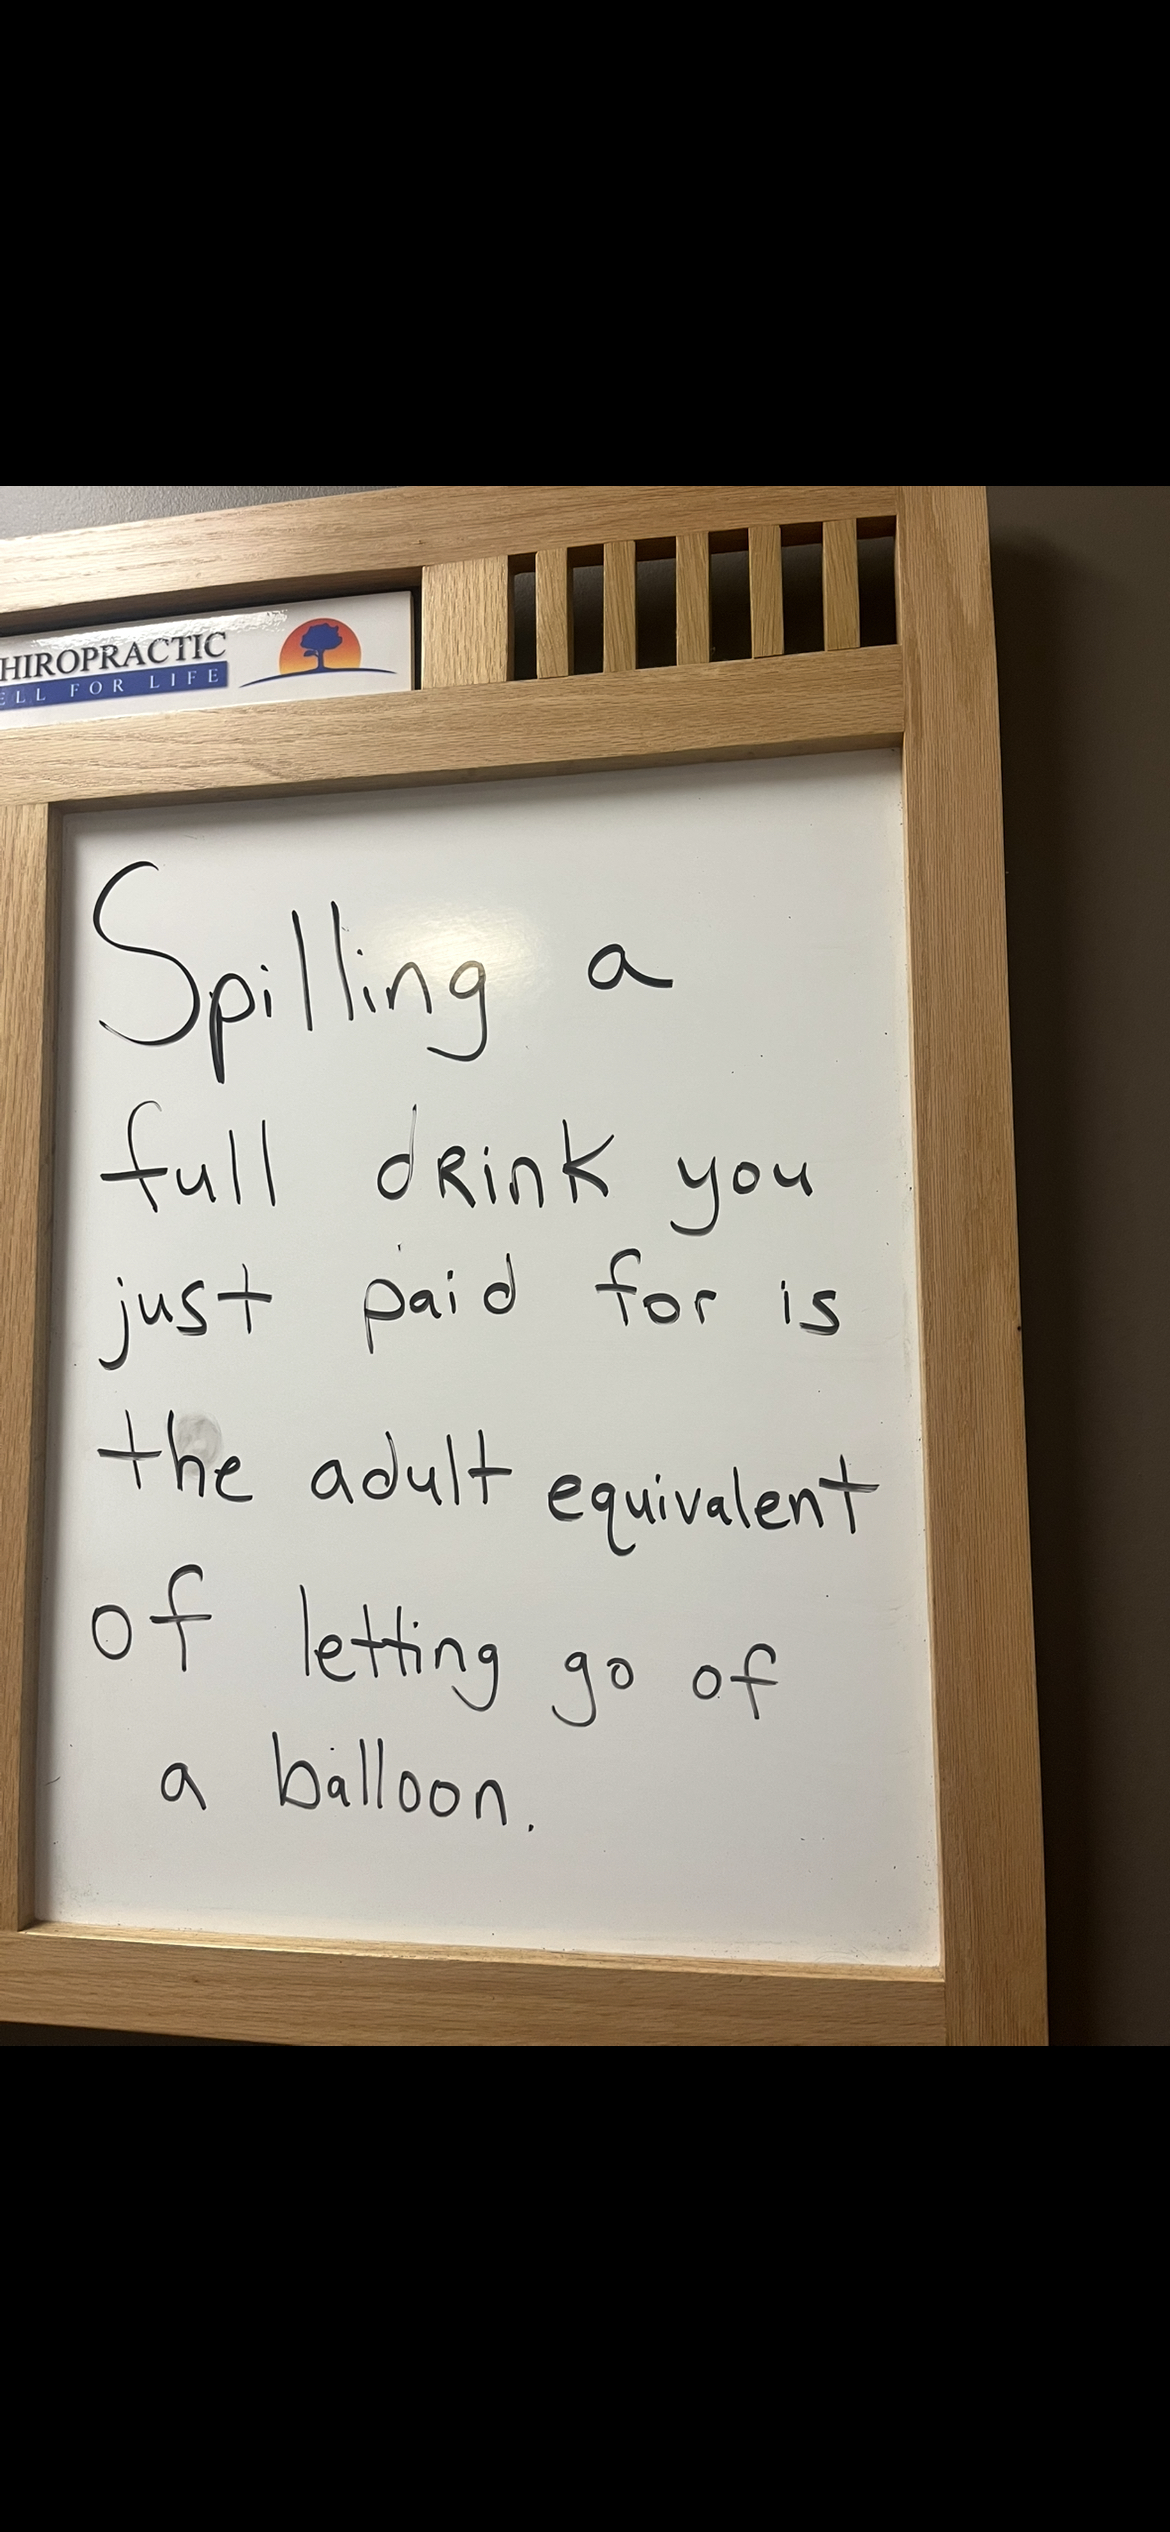 HIROPRACTIC
ELL FOR LIFE
Spilling a
full dRink you
just paid for is
the adult equivalent
of letting go of
a balloon.